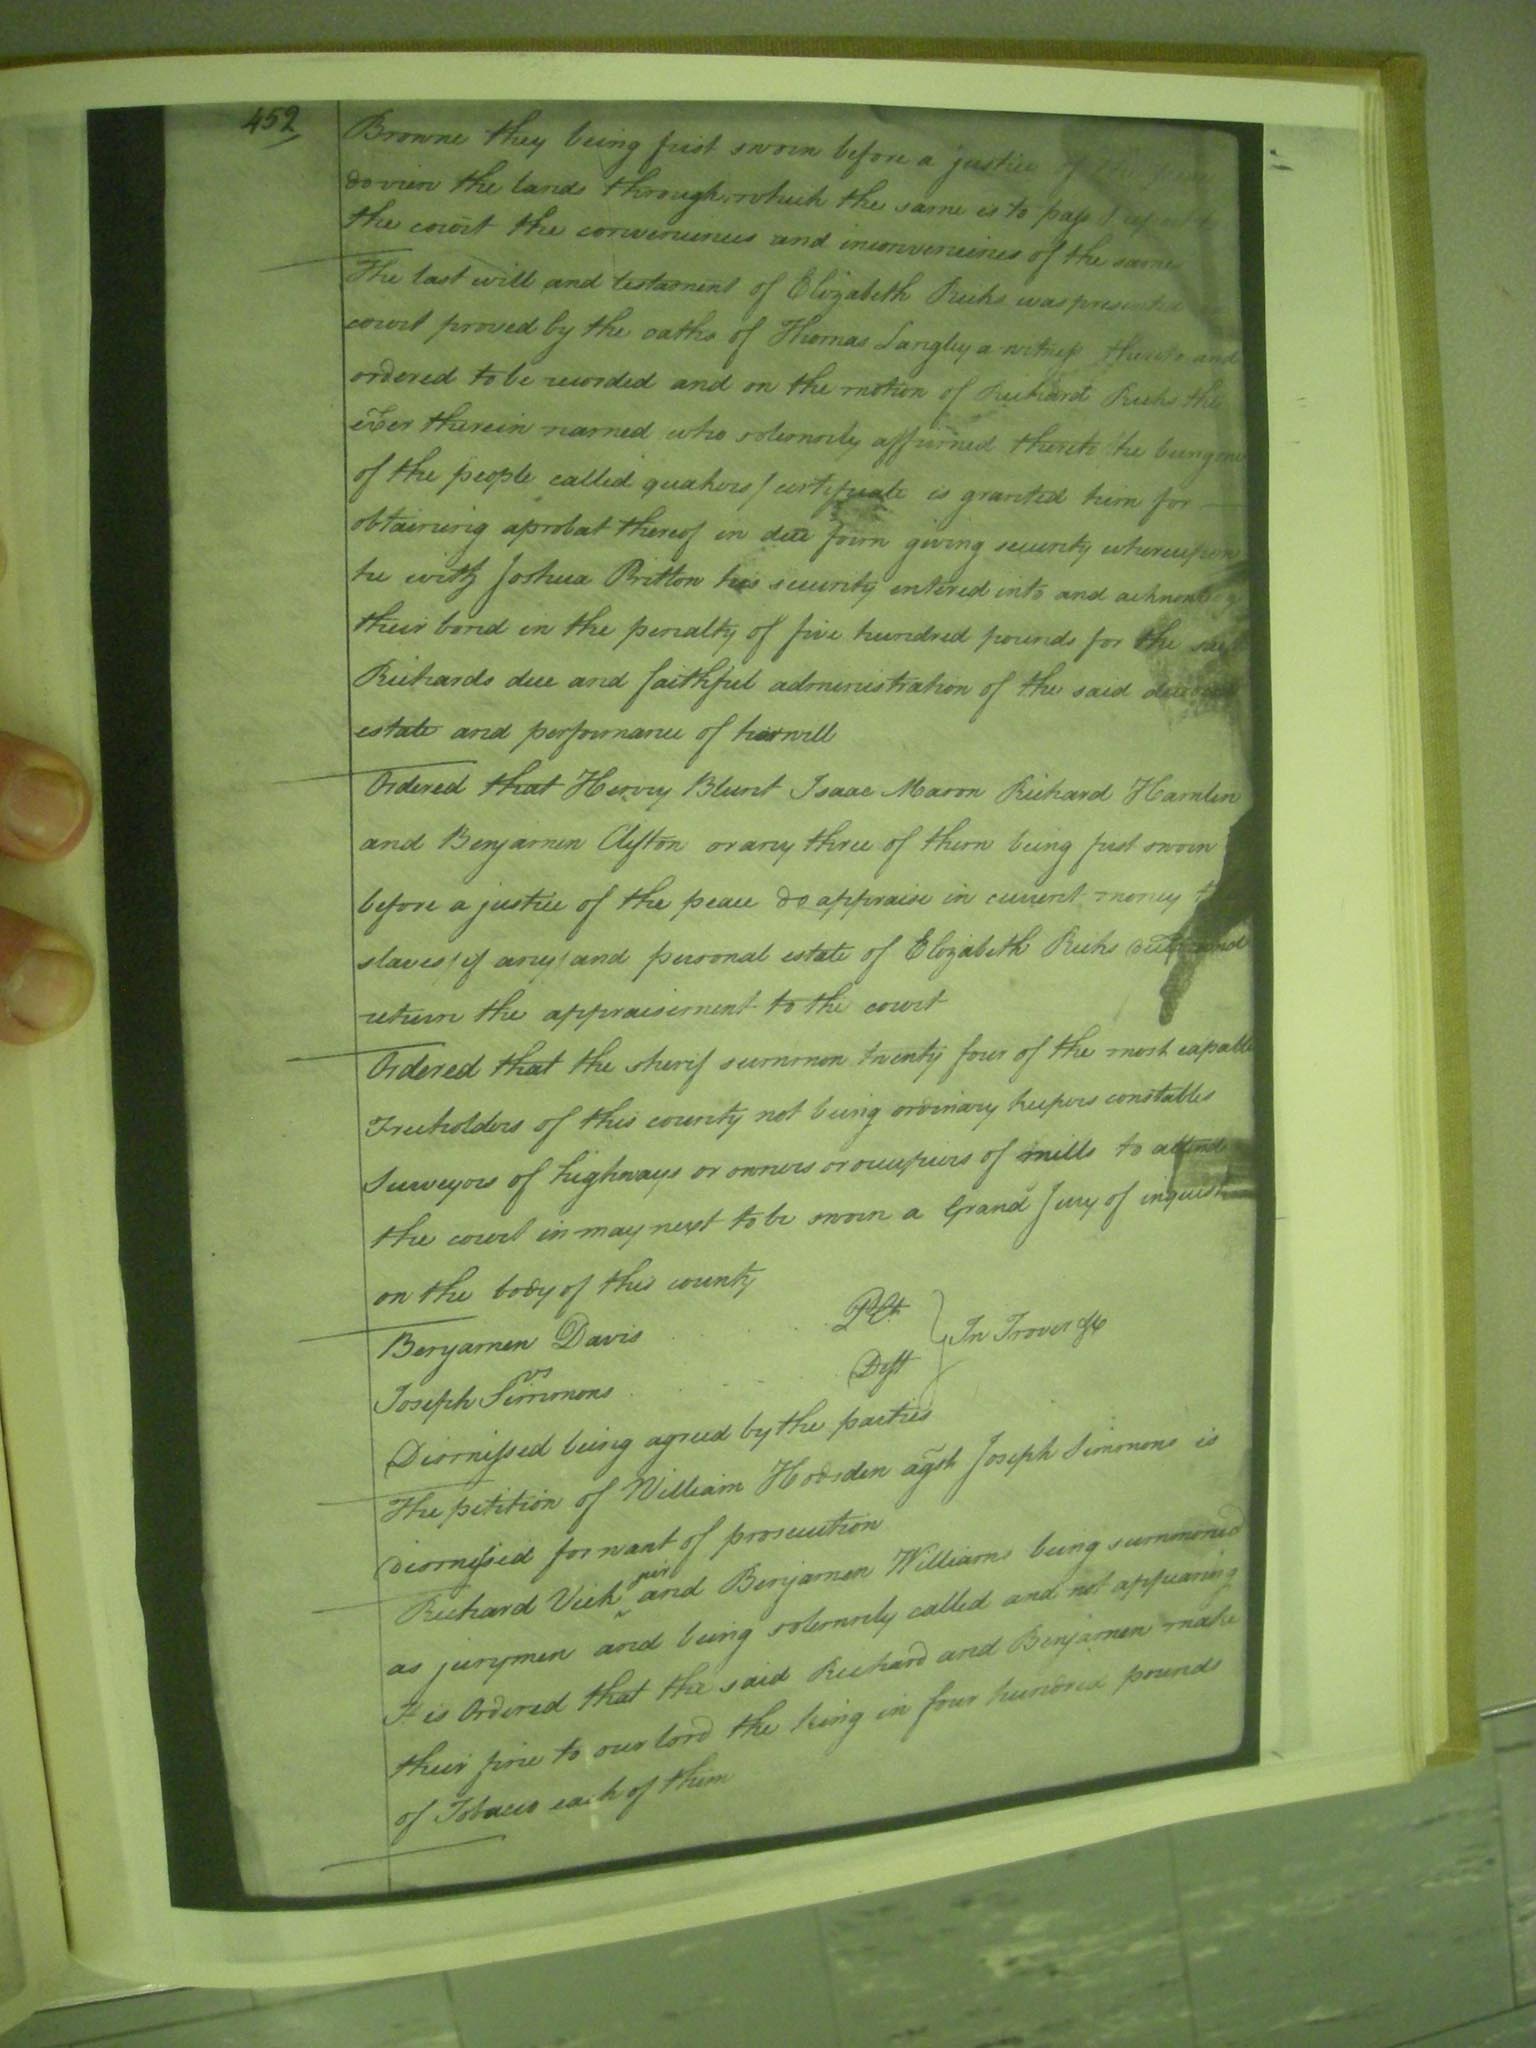 452
Browne they being first sworn before a justice of the peace
do view the lands through which the same is to pass & report to
the court the conveniences and inconveniencies of the same
The last will and testament of Elizabeth Ricks was presented in
court proved by the oaths of Thomas Langley a witness thereto and
ordered to be recorded and on the motion of Richard Ricks the
exer therein named who solemnly affirmed thereto he being one
of the people called quakers / certificate is granted him for
obtaining aprobat thereof in due form giving security whereupon
he with Joshua Britton his security entered into and acknowledg
their bond in the penalty of five hundred pounds for the said
Richards due and faithful administration of the said decedents
estate and performance of her will
Ordered that Henry Blunt Isaac Mason Richard Hamlin
and Benjamen Clifton or any three of them being first sworn
before a justice of the peace do appraise in current money the
slaves / if any / and personal estate of Elizabeth Ricks decd and
return the appraisement to the court
Ordered that the sherif summon twenty four of the most capable
Freeholders of this county not being ordinary keepers constables
Surveyors of highways or owners or occupiers of mills to attend
the court in may next to be sworn a Grand Jury of inquest
on the body of this county
Benjamen Davis Plt
vs In Trover &c
Joseph Simmons Deft
Dismissed being agreed by the parties
The petition of William Hodsden agst Joseph Simmons is
dismissed for want of prosecution
Richard Vick junr and Benjamen Williams being summoned
as jurymen and being solemnly called and not appearing
It is Ordered that the said Richard and Benjamen make
their fine to our lord the king in four hundred pounds
of Tobacco each of them